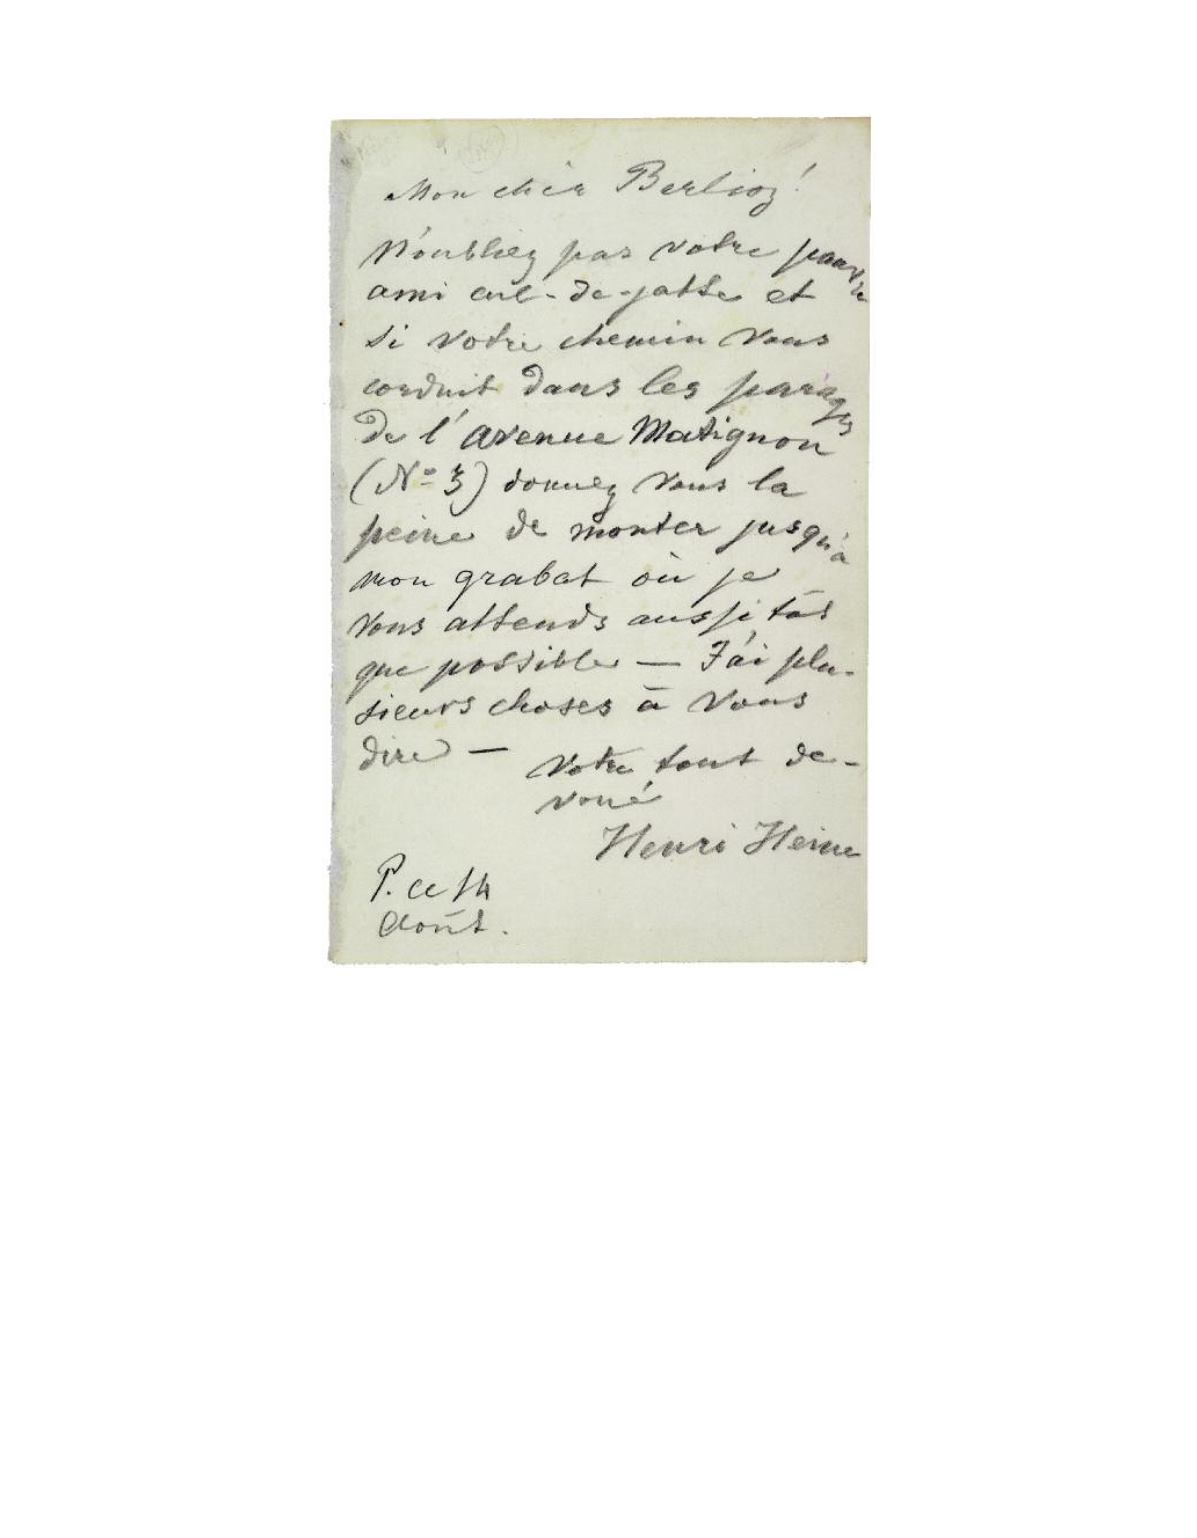 Mon cher Berlioz!
N'oubliez pas votre pauvre
ami cul-de-jatte et
si votre chemin vous
conduit dans les parages
de l'avenue Matignon
(No 3) donnez vous la
peine de monter jusqu'à
mon grabat où je
vous attends aussitôt
que possible — J'ai plu-
sieurs choses à vous
dire —
Votre tout de-
voué
Henri Heine
P. ce 14
Août.